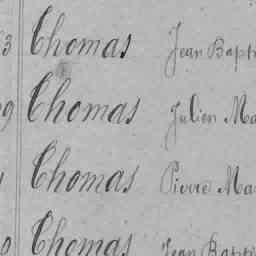 3 Thomas Jean Bapt
9 Thomas Julien Ma
Thomas Pierre Ma
0 Thomas Jean Bapt